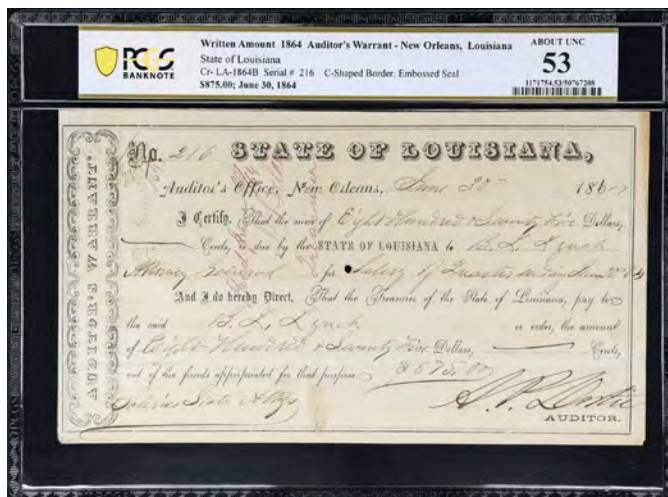 PCGS
BANKNOTE
Written Amount 1864 Auditor's Warrant - New Orleans, Louisiana
State of Louisiana
Cr- LA-1864B Serial # 216 C-Shaped Border; Embossed Seal
$875.00; June 30, 1864
ABOUT UNC
53
1171754.53/50767208
AUDITOR'S WARRANT.
No. 216 STATE OF LOUISIANA,
Auditor's Office, New Orleans, June 30th 1864
I Certify, That the sum of Eight Hundred & Seventy Five Dollars,
Cents, due by the STATE OF LOUISIANA to B. L. Lynch
Attorney General for Salary of Quarter ending June 30th
And I do hereby Direct, That the Treasurer of the State of Louisiana, pay to
the said B. L. Lynch or order, the amount
of Eight Hundred & Seventy Five Dollars, Cents,
out of the funds appropriated for that purpose $875.00
Salaries State
AUDITOR.